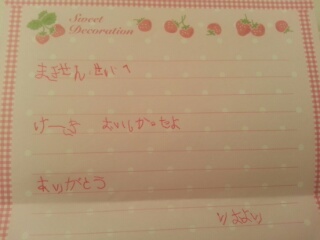 Sweet
Decoration
まきせんせいへ
けーき おいしかったよ
ありがとう
りおより